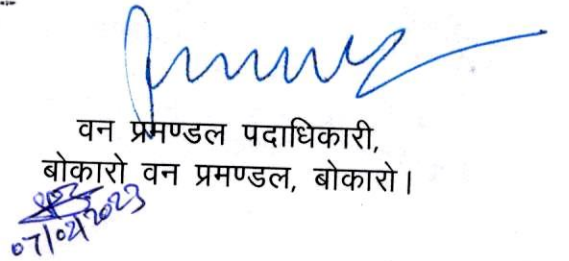 वन प्रमण्डल पदाधिकारी,
बोकारो वन प्रमण्डल, बोकारो।
07/02/2023